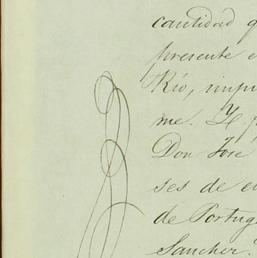 cantidad q
presente e
Rio, impo
me. Y p
Don José
ses de e
de Portug
Sancher.